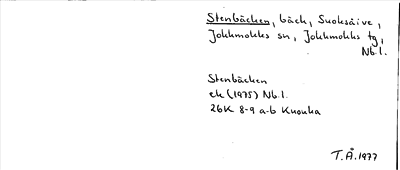 Stenbäcken, bäck, Suoksáive,
Jokkmokks sn, Jokkmokks tg,
Nb l.
Stenbäcken
ek (1975) Nb l.
26K 8-9 a-b Kuouka
T.Å. 1977